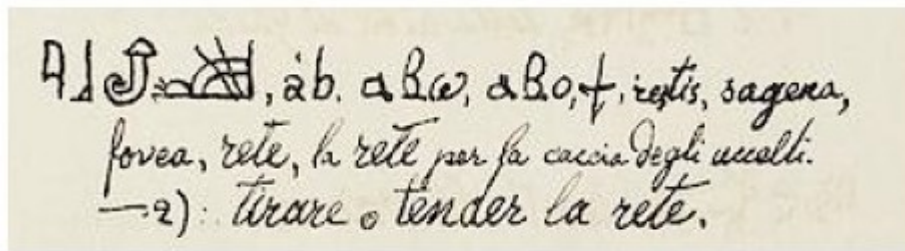 , ab. ⲁⲃⲱ, ⲁⲃⲟ, †, sagena,
fovea, rete, la rete per la caccia degli uccelli.
—2): tirare o tender la rete.